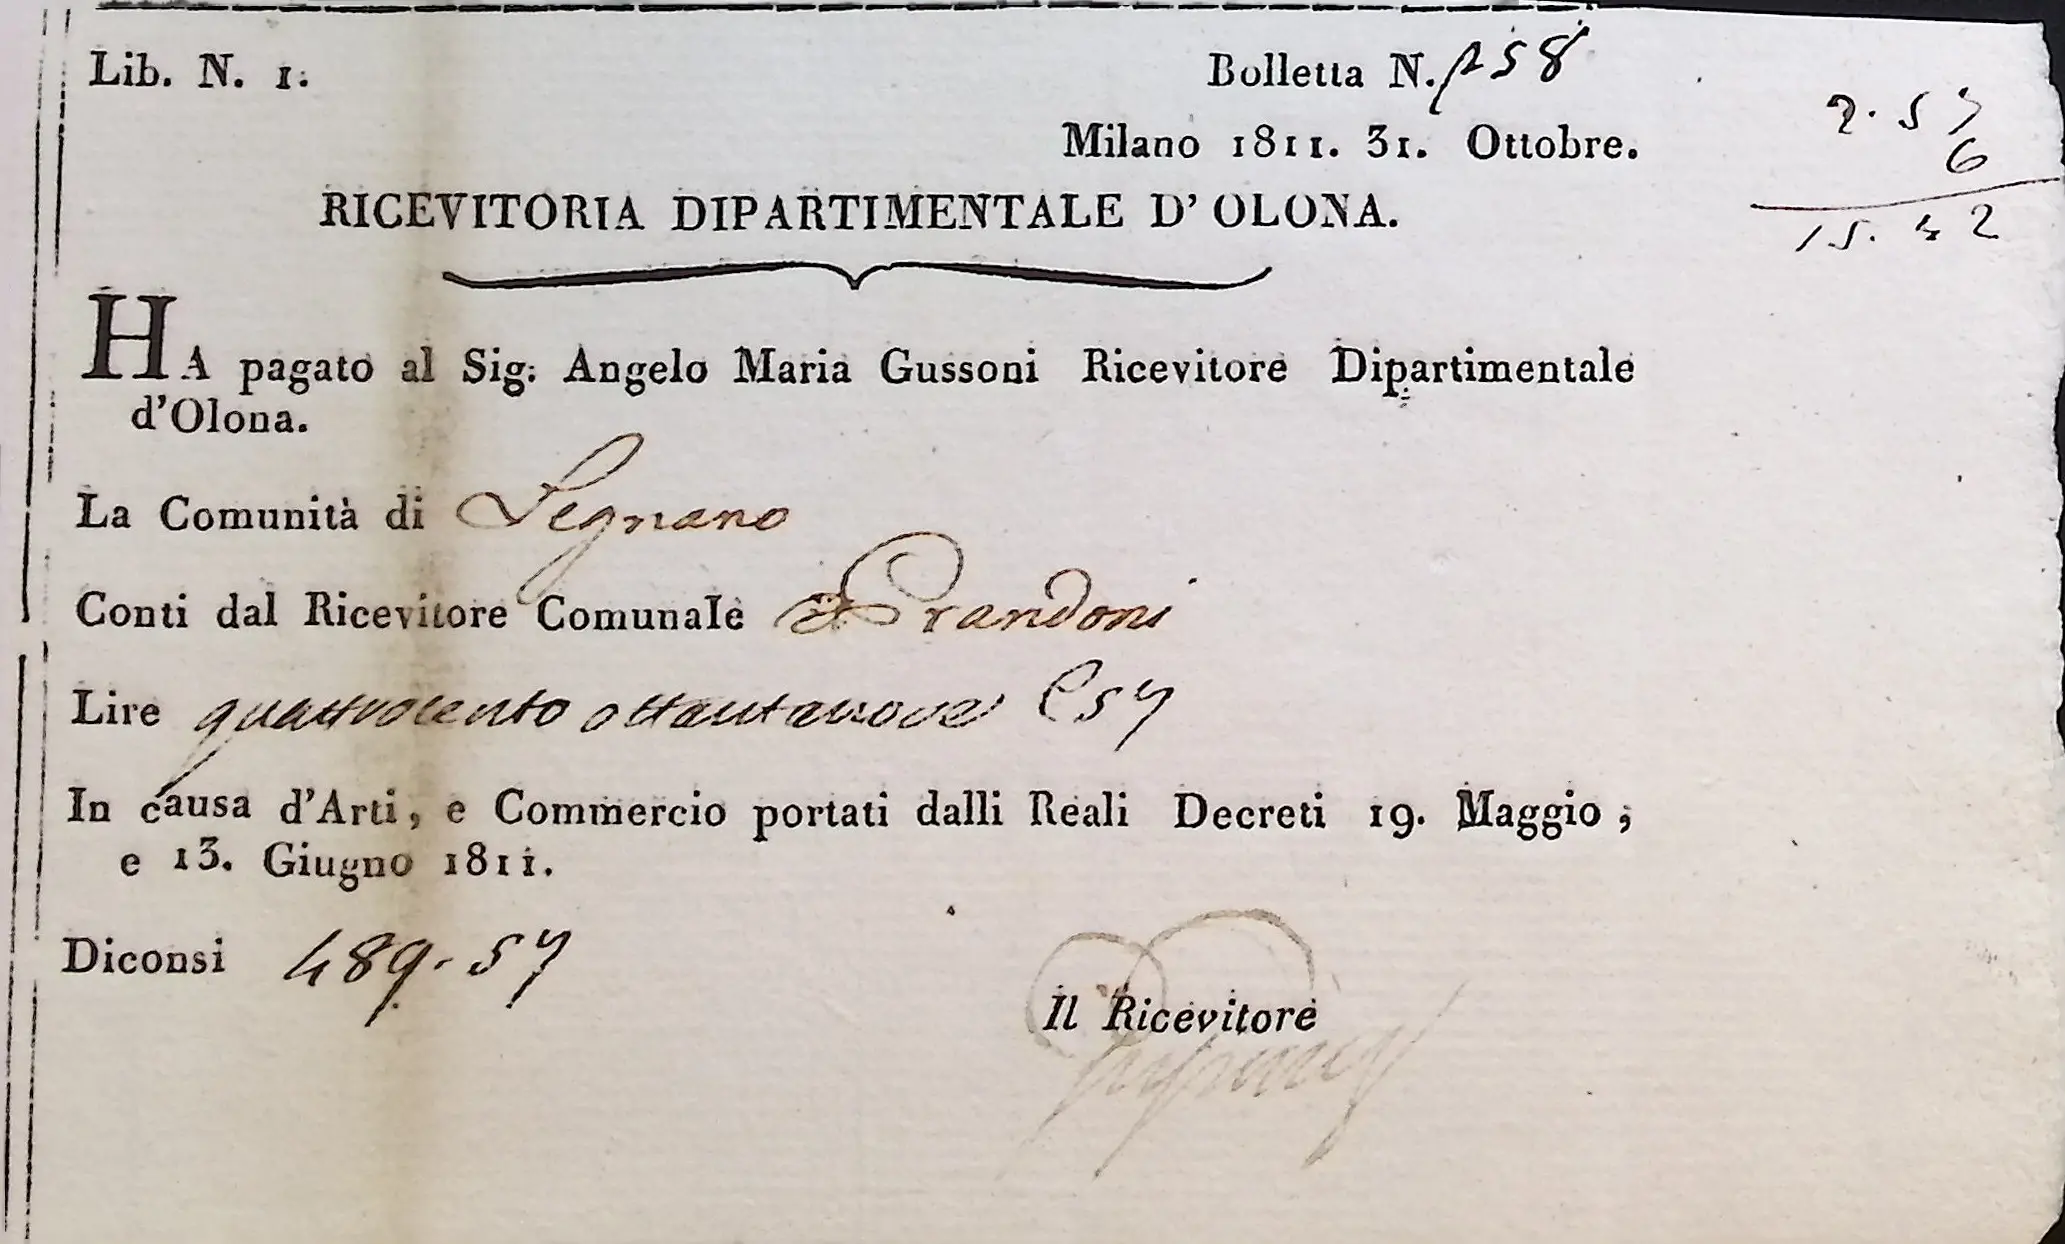 Lib. N. 1.
Bolletta N. 158
Milano 1811. 31. Ottobre.
2.57
6
15.42
RICEVITORIA DIPARTIMENTALE D'OLONA.
HA pagato al Sig. Angelo Maria Gussoni Ricevitore Dipartimentale
d'Olona.
La Comunità di Legnano
Conti dal Ricevitore Comunale Prandoni
Lire quattrocento ottantanove C 57
In causa d'Arti, e Commercio portati dalli Reali Decreti 19. Maggio,
e 13. Giugno 1811.
Diconsi 489.57
Il Ricevitore